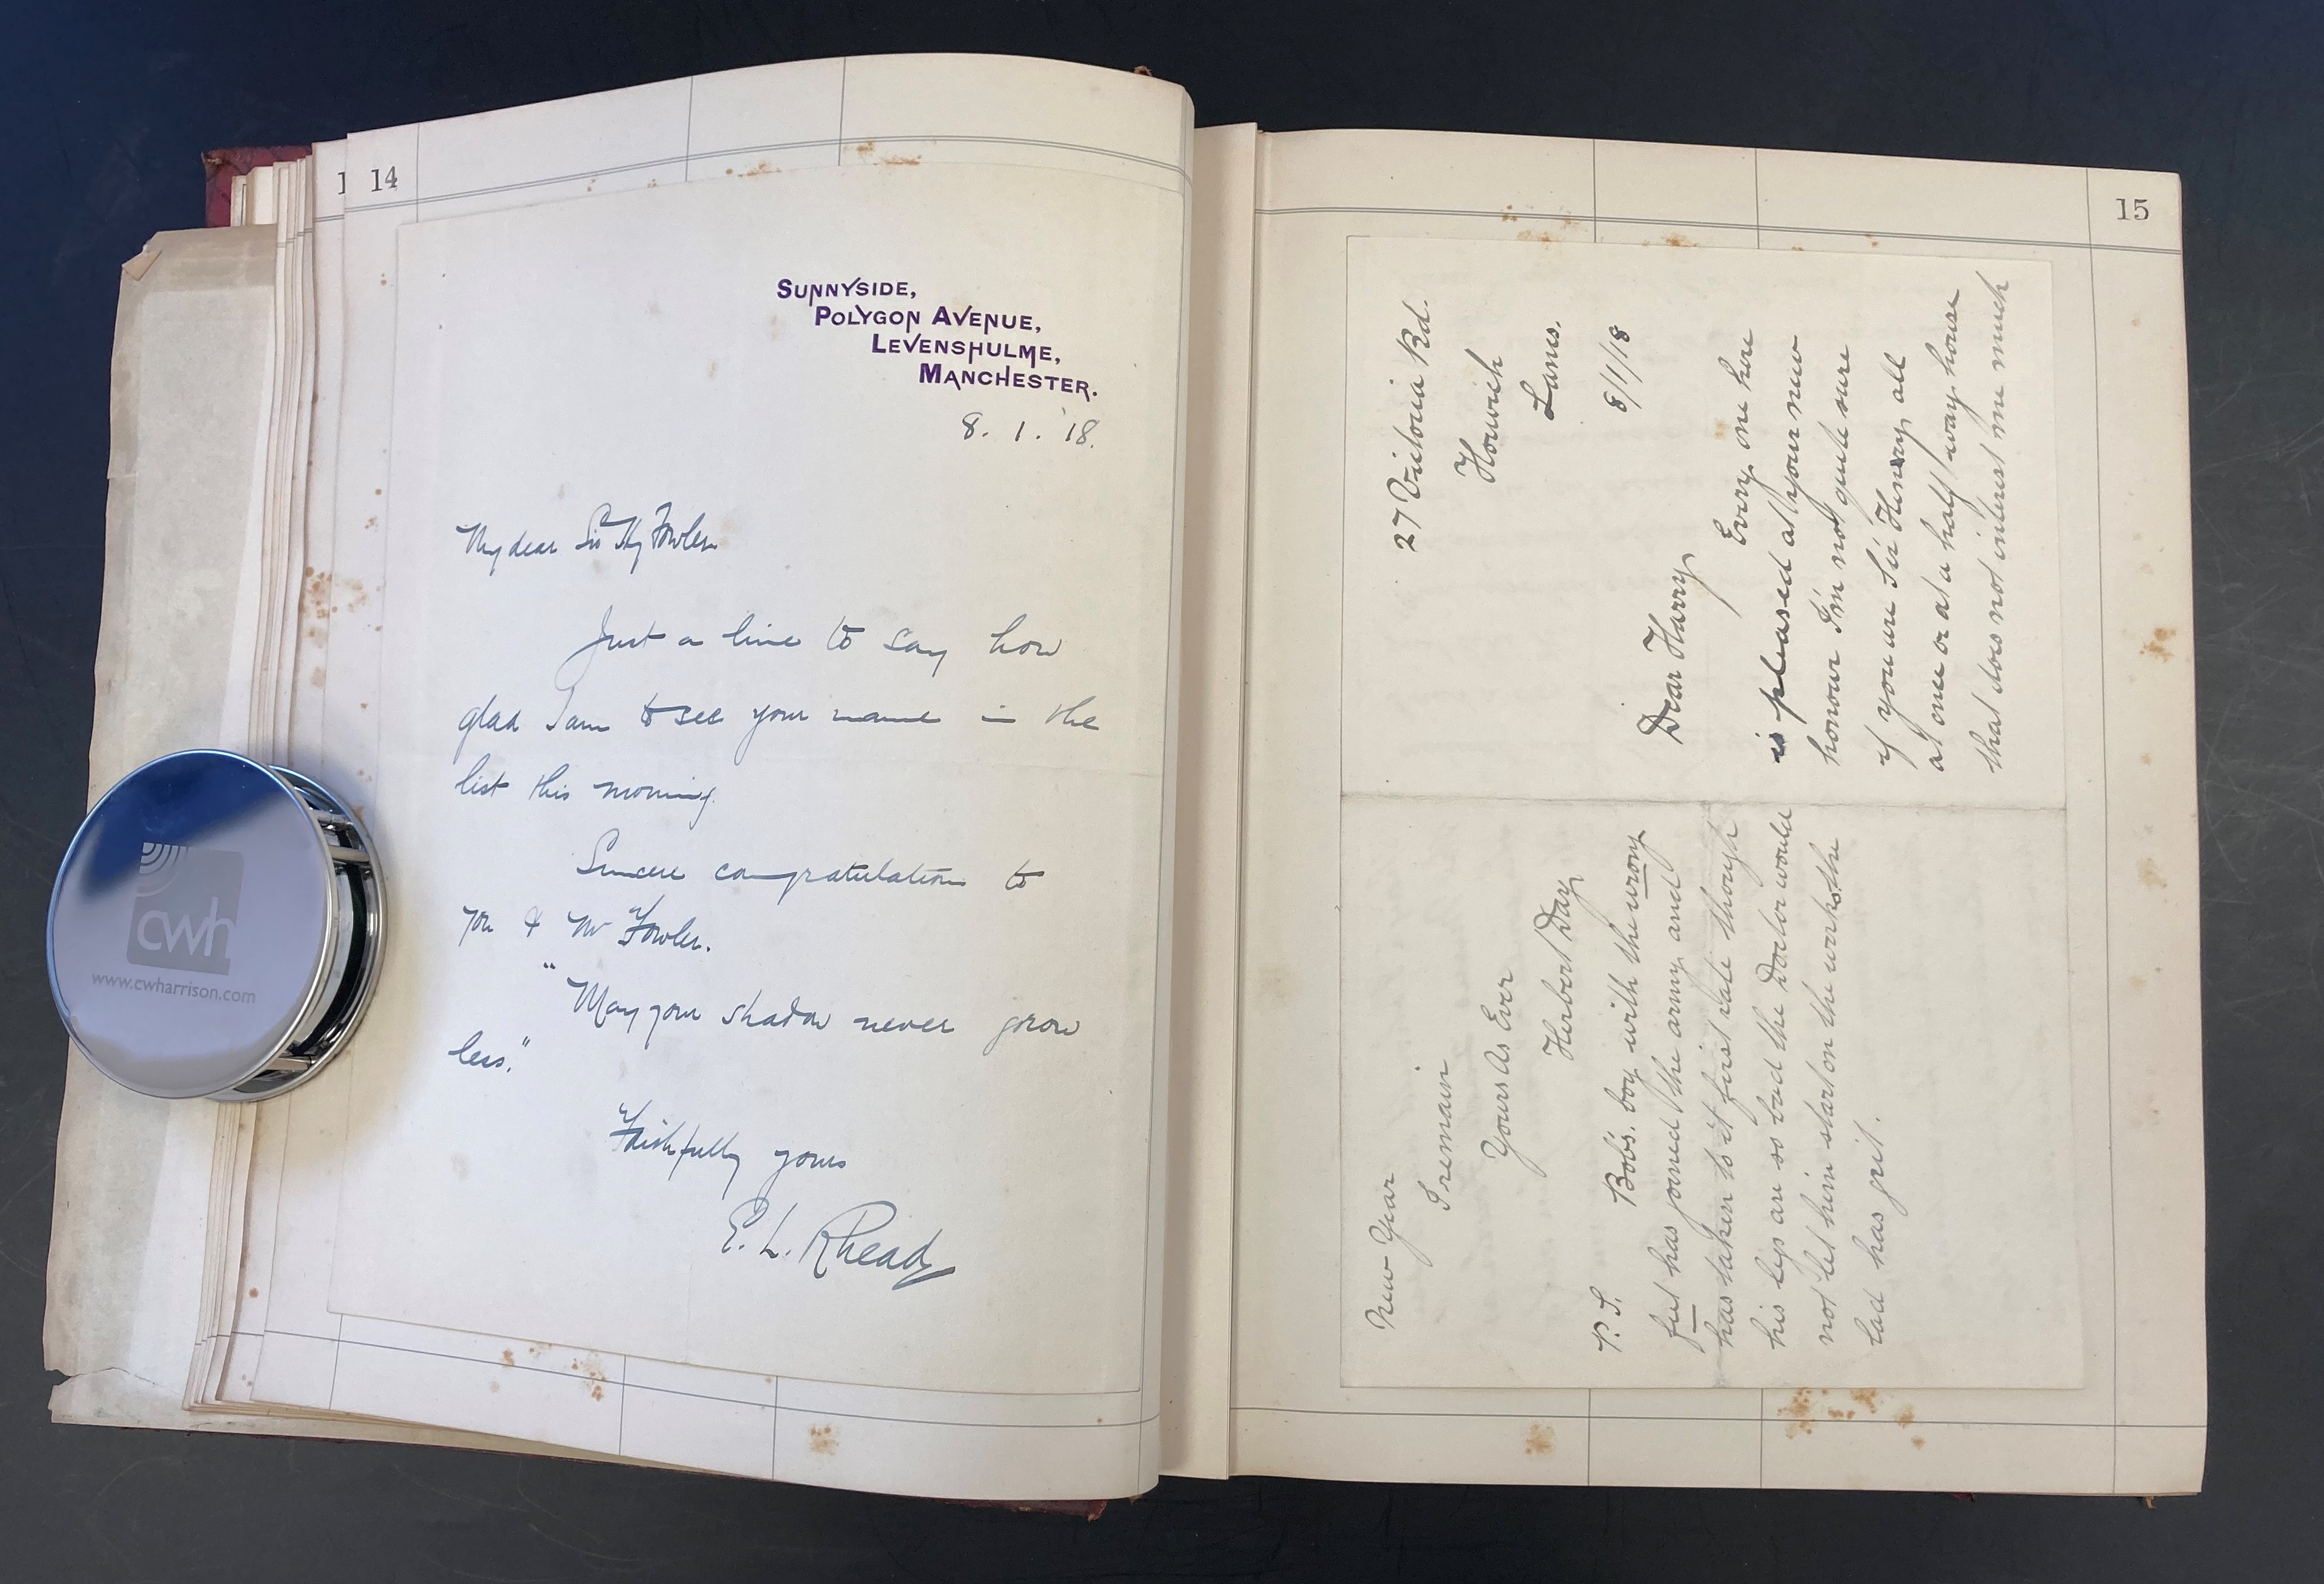 1 14
SUNNYSIDE,
POLYGON AVENUE,
LEVENSHULME,
MANCHESTER.
8. 1. '18.
My dear Sir Hy Fowler
Just a line to say how
glad I am to see your name in the
list this morning.
Sincere congratulations to
you & Fowler.
"May your shadow never grow
less."
Faithfully yours
E. L. Rhead
cwh
www.cwharrison.com
15
27 Victoria Rd.
Horwich
Lancs.
8/1/18
Dear Harry
Every one here
is pleased at your new
honour I'm not quite sure
if you are Sir Henry all
at once or at a half way house
that does not interest me much
New Year
I remain
Yours As Ever
Herbert Day
P.S. Bob's. boy with the wrong
feet has joined the army and
has taken to it first rate though
his legs are so bad the Doctor would
not let him start on the works the
lad has grit.